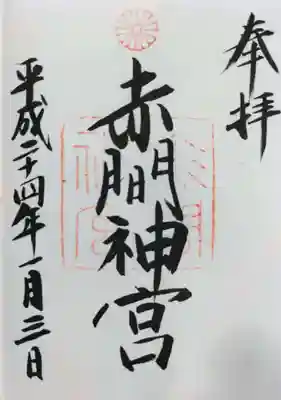 奉拝
赤間神宮
平成二十四年一月三日